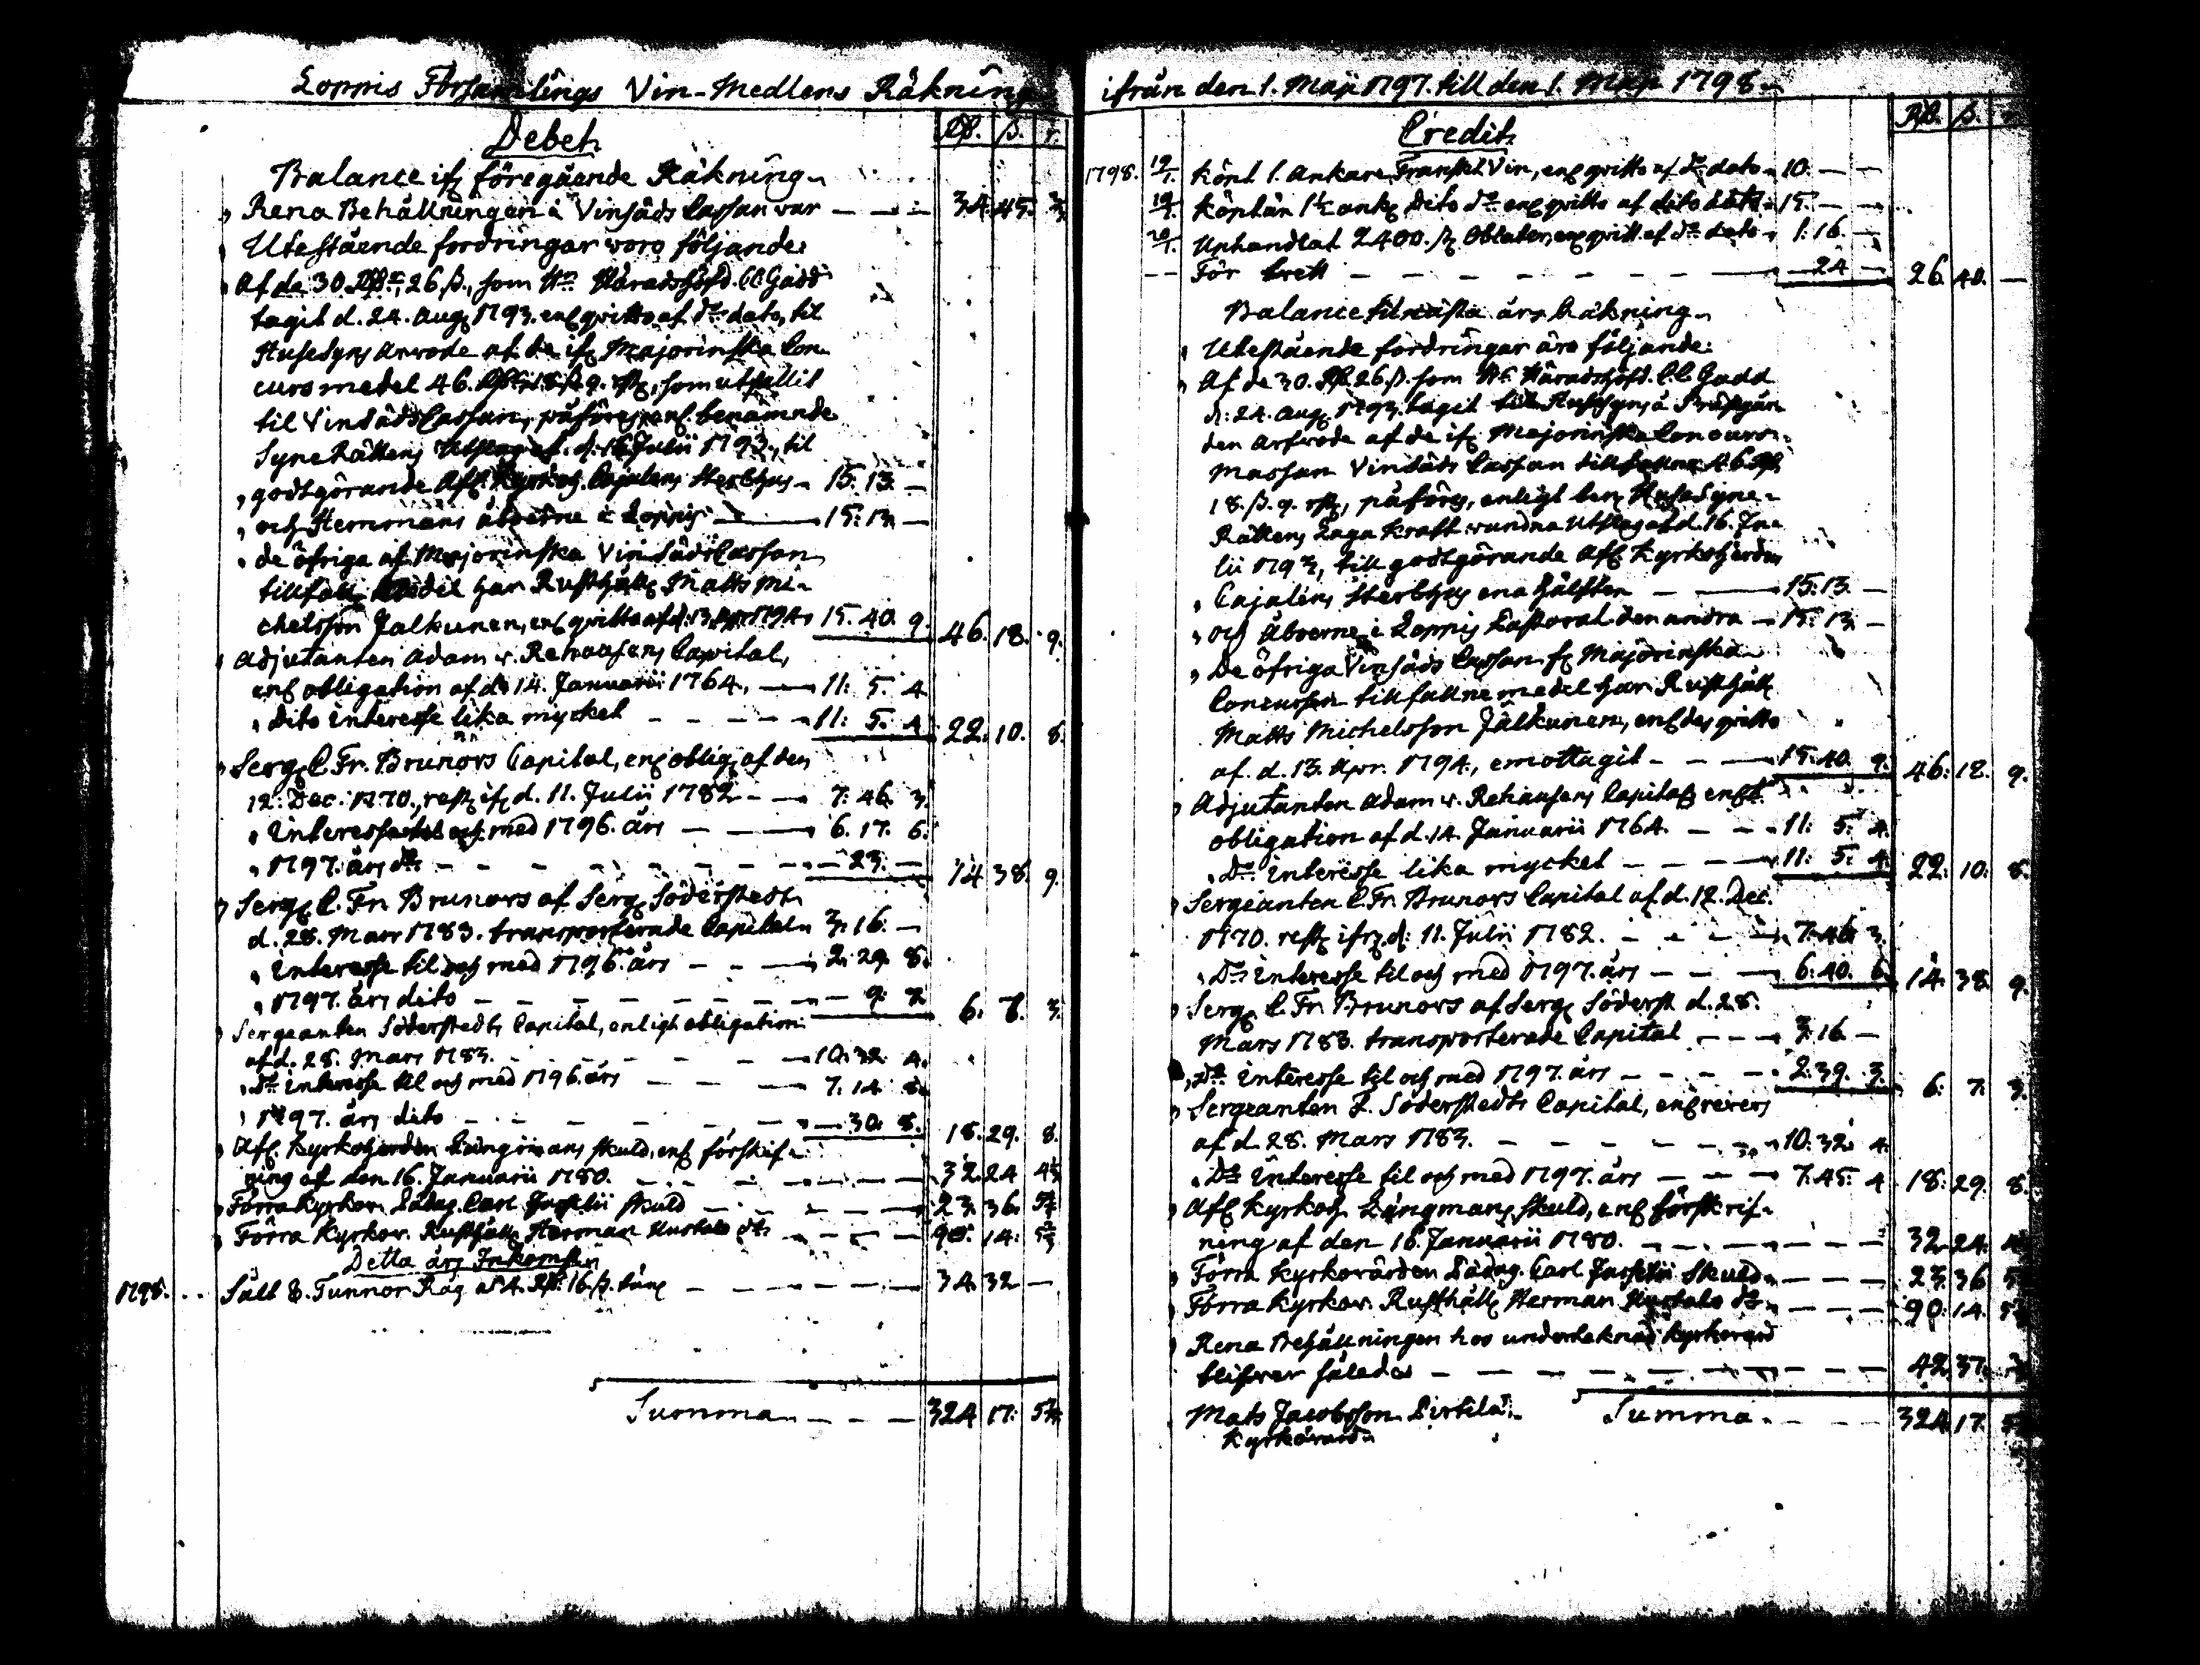 Loppis Församlings Vin-Medlens Räkning
Debet.
Rd. ß. r.
Balance ifr föregående Räkning
Rena Behållningen i Vinsäds Cassan war — — 34. 45.
Utestående fordringar woro följande:
Af de 30. Rd. 26 ß., som Hr Häradshöfd. C. C. Gadd
tagit d. 24. Aug. 1793. enl qvitto af do dato, til
HuseSyns arwode af de ifr Majorinska Con-
curs medel 46. Rd. 18 ß 9. r., som utfallit
til Vinsäds Cassan, påföres, enl benämnde
SyneRättens Utslag af d. 16 Julii 1793., til
godtgörande Afl. Kyrkoh. Cajalens Sterbhus — 15. 13. —
och Hemmans åboerne i Loppis — 15. 13. —
de öfriga af Majorinska Vinsäds Cassan
tillfall. Medel har Rusthåll. Matts Mi-
chelsson Jalkunen, enl qvitto af d. 13. Apr. 1794. 15. 40. 9. 46. 18. 9.
Adjutanten Adam v. Rehausens Capital,
enl obligation af d. 14. Januarii 1764. — 11: 5. 4
Dito interesse lika mycket — — — 11: 5. 4. 22. 10. 8.
Serg. C. Fr. Brunors Capital, enl oblig. af den
12. Dec. 1770., rest. ifr d. 11. Julii 1782 — — 7. 46. 3.
Interesse til och med 1796. års — — 6. 17. 6.
1797. års do — — — — 23. — 14 38. 9.
Serg. C. Fr. Brunors af Serg. Söderstedt
d. 28. Mars 1783. transporterade Capital 3. 16. —
Interesse til och med 1796. års — — 2. 29. 8.
1797. års dito — — — — 9. 7. 6. 7. 3.
Sergeanten Söderstedts Capital, enligt obligation
af d. 28. Mars 1783. — — — 10. 32. 4.
Do interesse til och med 1796. års — — 7. 14. 8.
1797. års dito — — — — 30. 8. 18. 29. 8.
Afl. Kyrkoherden Långmans skuld, enl förskrif-
ning af den 16. Januarii 1780. — — — 32. 24
Förra Kyrkov. Carl skuld — — — 23. 36.
Förra Kyrkov. Rusthåll. Herman do — — — 90. 14.
Detta års Inkomst.
1798. Sålt 8. Tunnor Råg à 4. Rd. 16 ß. — — — 34. 32 —
Summa — — — 324 17:
ifrån den 1. Maji 1797. till den 1. Maji 1798.
Credit.
Rd. ß.
1798. 19/1. Köpt 1. Ankare Franskt Vin, enl qvitto af do dato 10. — —
19/1. Köpt än 1½ ank. Dito do enl qvitto af dito dato 15. — —
20/1. Uphandlat 2400. Oblater, enl qvitt. af do dato 1. 16. —
För — — — 24 — 26. 40. —
Balance til nästa års Räkning
Utestående fordringar äro följande:
Af de 30. Rd. 26 ß. som Hr. Häradshöfd. C. C. Gadd
d. 24. Aug. 1793. tagit till HusSyns å Prästgår-
den Arfwode af de ifr Majorinska Concurs-
Massan Vinsäds Cassan tillfallne 46 Rd.
18. ß. 9. r., påföres, enligt ben. HuseSyne-
Rättens Laga Kraft wundna Utslag af d. 16. Ju-
lii 1793, till godtgörande Afl. Kyrkoherden
Cajalens Sterbhus ena hälften — — 15: 13. —
och åboerne i Loppis Pastorat den andra — 15: 13. —
De öfriga Vinsäds Cassan fr. Majorinska
Concursen tillfallne medel har Rusthåll.
Matts Michelsson Jälkunen, enl des qvitto
af d. 13. Apr. 1794., emottagit — — 15: 40. 9. 46: 18. 9.
Adjutanten Adam v. Rehausens Capital enl
obligation af d. 14. Januarii 1764. — — 11: 5. 4.
Do interesse lika mycket — — — 11: 5. 4. 22: 10: 8.
Sergeanten C. Fr. Brunors Capital af d. 12. Dec.
1770. rest. ifr. d. 11. Julii 1782. — — 7. 46. 3.
Do interesse til och med 1797. års — — 6: 40. 6. 14. 38. 9.
Serg. C. Fr. Brunors af Serg. Söderst. d. 28.
Mars 1783. transporterade Capital — — 3. 16 —
Do interesse til och med 1797. års — — 2: 39. 3. 6: 7. 3.
Sergeanten Söderstedts Capital, enl revers
af d. 28. Mars 1783. — — — 10. 32. 4.
Do Interesse til och med 1797. års — — 7. 45. 4 18: 29. 8.
Afl. Kyrkoh. Långmans skuld, enl förskrif-
ning af den 16. Januarii 1780. — — — 32. 24.
Förra Kyrkovärden Carl skuld — — — 23. 36
Förra Kyrkov. Rusthåll. Herman do — — — 90: 14.
Rena Behållningen hos underteknad Kyrkovärd
blifwer således — — — 42. 37.
Mats Jacobsson Pirtilä. Summa — — — 324. 17.
Kyrkovärd.